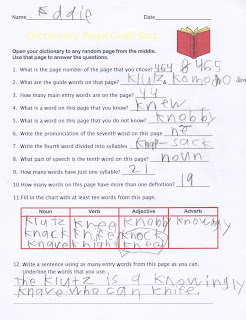 Name Eddie Date
Dictionary Page Grab Bag
Open your dictionary to any random page from the middle.
Use that page to answer the questions.
1. What is the page number of the page that you chose? 464 & 465
2. What are the guide words on that page? Klutz & Komodo
3. How many main entry words are on the page? 44
4. What is a word on this page that you know? knew
5. What is a word on this page that you do not know? knobby
6. Write the pronunciation of the seventh word on this page
7. Write the fourth word divided into syllables Knap-sack
8. What part of speech is the tenth word on this page? noun
9. How many words have just one syllable? 21
10. How many words on this page have more than one definition? 19
11. Fill in the chart with at least ten words from this page.
Noun Verb Adjective Adverb
Klutz knea knobby knowingly
knack knife knock
knave knight knee
12. Write a sentence using as many entry words from this page as you can.
Underline the words that you use.
The klutz is a knowingly
knave who can knife.